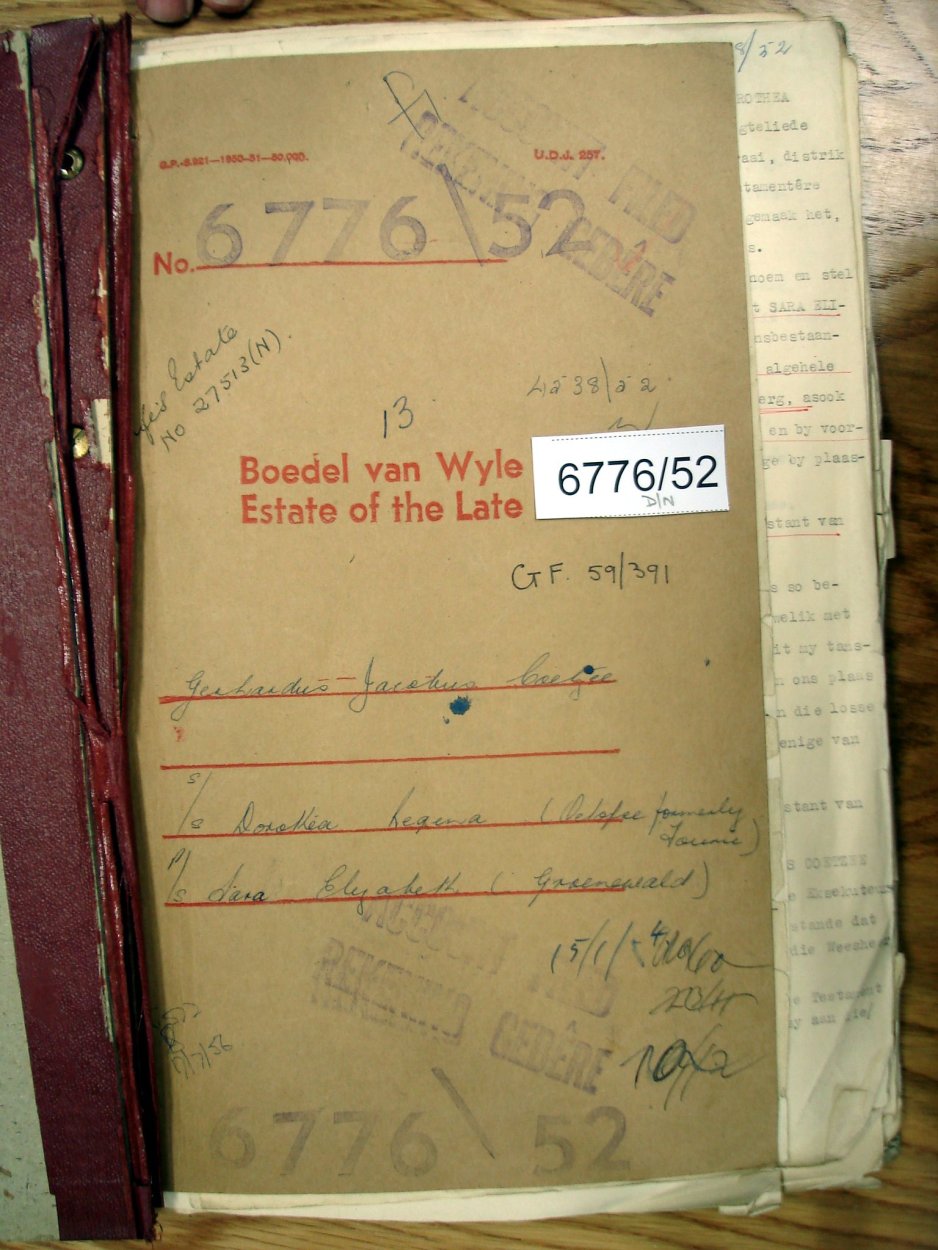 8/52
G.P.-S.921—1950-51—50,000.
U.D.J. 257.
ACCOUNT FILED
REKENING GEDÊRE
No. 6776\52
Estate
No 27513(N).
4538/52
13
Boedel van Wyle
Estate of the Late
6776/52
D/N
GF. 59/391
Gerhardus Jacobus Coetzee
s/s Dorothea Regina ( formerly
)
P/s Sara Elizabeth (Groenewald)
ACCOUNT FILED
REKENING GEDÊRE
15/1/54
/7/56
6776\52
ROTHEA
gteliede
aai, distrik
tamentêre
gemaak het,
s.
noem en stel
t SARA ELI-
nsbestaan-
algehele
erg, asook
en by voor-
ge by plaas-
stant van
s so be-
welik met
it my tans-
n ons plaas
n die losse
enige van
stant van
S COETZEE
e Eksekuteur
stande dat
die Weeshe
e Testament
y aan die/